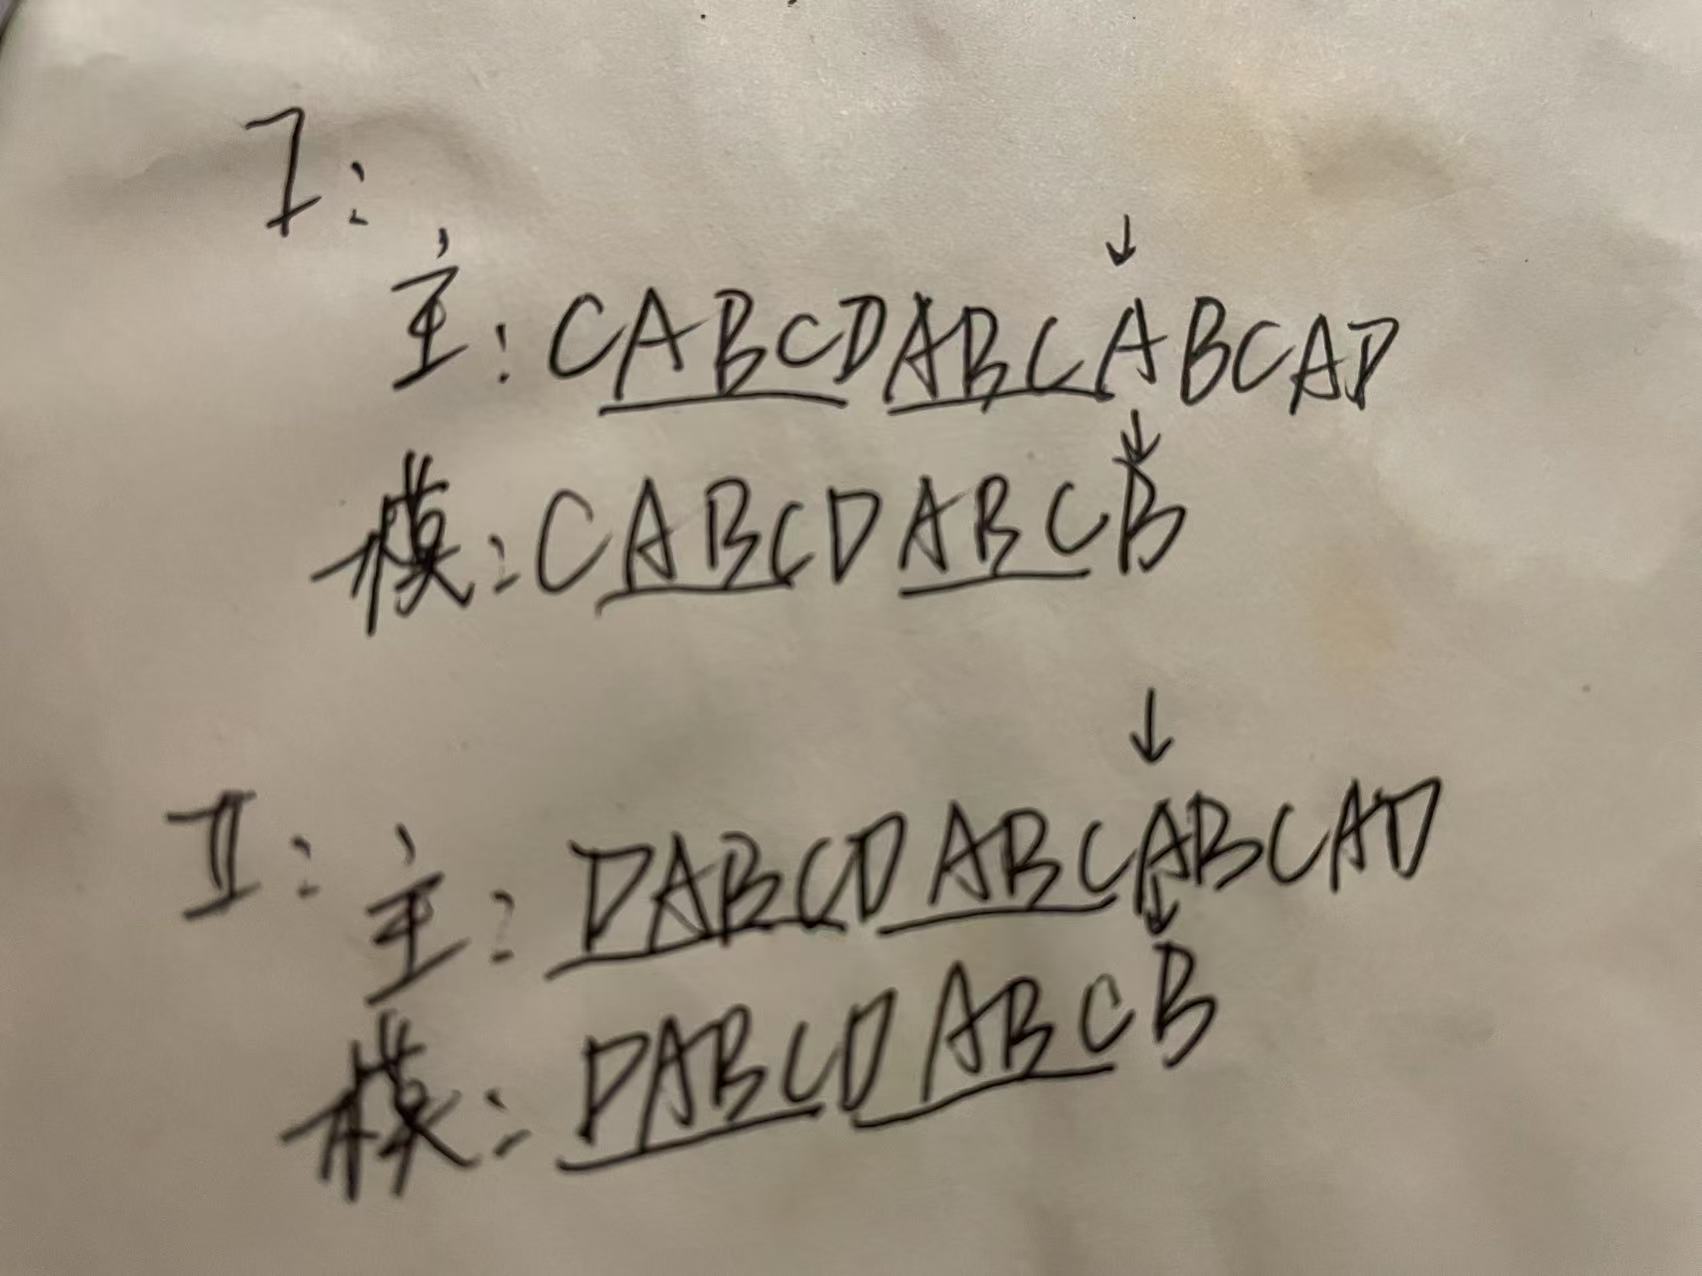 I:
主: CABCDABCABCAD
模: CABCDABCB
II: 主: DABCDABCABCAD
模: DABCDABCB